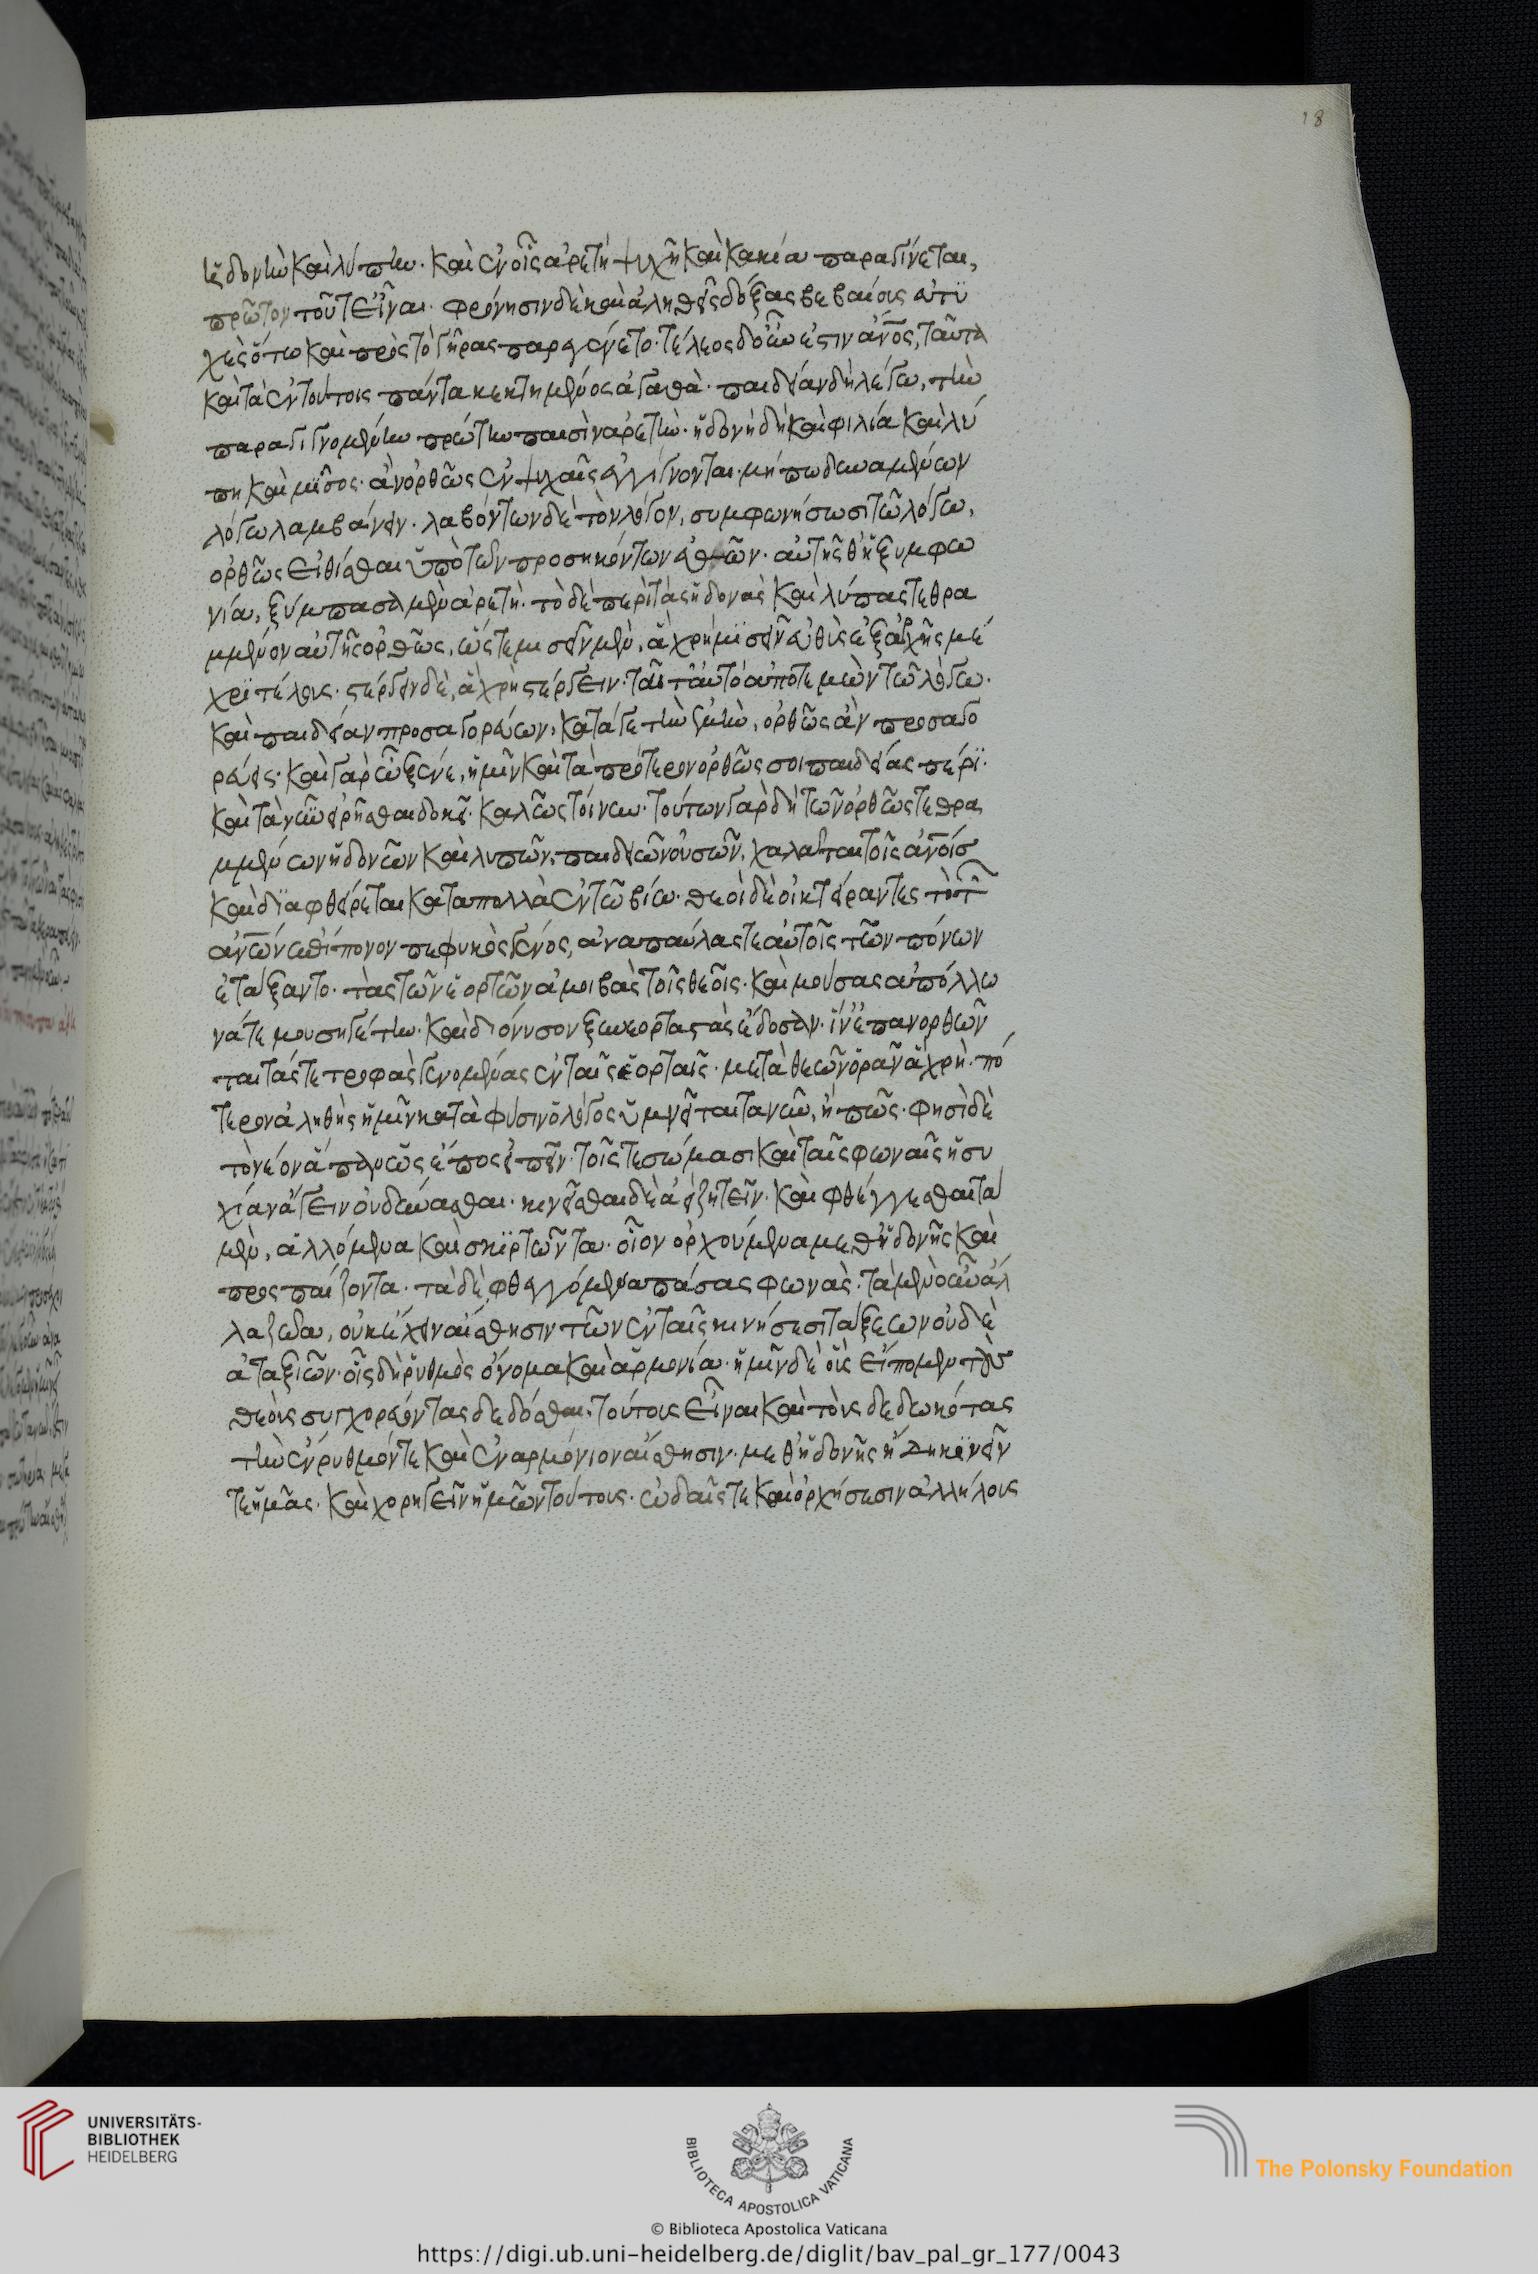 18
ἡδονὴν καὶ λύπην· καὶ ἐν οἷς ἀρετὴ ψυχῇ καὶ κακία παραγίνεται,
πρῶτον τοῦτ' εἶναι. φρόνησιν δὲ καὶ ἀληθεῖς δόξας βεβαίους εὐτυ
χὲς ὅτω καὶ πρὸς τὸ γῆρας παρεγένετο. τέλεος δ' οὖν ἐστιν ἄν̅ος, ταῦτα
καὶ τὰ ἐν τούτοις πάντα κεκτημένος ἀγαθά. παιδείαν δὴ λέγω, τὴν
παραγιγνομένην πρώτην παισὶν ἀρετήν. ἡδονὴ δὴ καὶ φιλία καὶ λύ
πη καὶ μῖσος· ἂν ὀρθῶς ἐν ψυχαῖς ἐγγίγνονται. μήπω δυναμένων
λόγω λαμβάνειν. λαβόντων δὲ τὸν λόγον, συμφωνήσωσι τῶ λόγω,
ὀρθῶς εἰθίσθαι ὑπὸ τῶν προσηκόντων ἐθῶν. αὐτῆσθ' ἡ ξυμφω
νία, ξύμπασα μὲν ἀρετή. τὸ δὲ περὶ τὰς ἡδονὰς καὶ λύπας τεθρα
μμένον αὐτῆς ὀρθῶς, ὥστε μισεῖν μὲν, ἃ χρὴ μισεῖν εὐθὺς ἐξ ἀρχῆς μέ
χρι τέλους. στέργειν δὲ, ἃ χρὴ στέργειν. ταῦτ' αὐτὸ ἀποτεμὼν τῶ λόγω.
καὶ παιδείαν προσαγορεύων, κατά γε τὴν ἐμὴν, ὀρθῶς ἂν προσαγο
ρεύεις. καὶ γὰρ ὦ ξένε, ἡμῖν καὶ τὰ πρότερον ὀρθῶς σοι παιδείας πέρι.
καὶ τὰ νῦν εἰρῆσθαι δοκεῖ. καλῶς τοίνυν. τούτων γὰρ δὴ τῶν ὀρθῶς τεθρα
μμένων ἡδονῶν καὶ λυπῶν, παιδειῶν οὐσῶν, χαλᾶται τοῖς ἀν̅οις
καὶ διαφθείρεται κατὰ πολλὰ ἐν τῶ βίω. θεοὶ δὲ οἰκτείραντες τὸ τῶν
ἀν̅ων ἐπίπονον πεφυκὸς γένος, ἀναπαύλας τε αὐτοῖς τῶν πόνων
ἐτάξαντο. τὰς τῶν ἑορτῶν ἀμοιβὰς τοῖς θεοῖς. καὶ μούσας ἀπόλλω
νά τε μουσηγέτην. καὶ διόνυσον ξυνεορταστὰς ἔδοσαν. ἵν' ἐπανορθῶν
ται τάς τε τροφὰς γενομένας ἐν ταῖς ἑορταῖς. μετὰ θεῶν ὁρᾶν ἃ χρὴ. πό
τερον ἀληθὴς ἡμῖν κατὰ φύσιν ὁ λόγος ὑμνεῖται τανῦν, ἢ πῶς. φησὶ δὲ
τὸ νέον ἅπαν ὡς ἔπος εἰπεῖν. τοῖς τε σώμασι καὶ ταῖς φωναῖς ἡσυ
χίαν ἄγειν οὐ δύνασθαι. κινεῖσθαι δὲ ἀεὶ ζητεῖν. καὶ φθέγγεσθαι τὰ
μὲν, ἁλλόμενα καὶ σκιρτῶντα. οἷον ὀρχούμενα μεθ' ἡδονῆς καὶ
προσπαίζοντα. τὰ δὲ, φθεγγόμενα πάσας φωνάς. τὰ μὲν οὖν ἄλ
λα ζῶα, οὐκ ἔχειν αἴσθησιν τῶν ἐν ταῖς κινήσεσι τάξεων οὐδὲ
ἀταξιῶν. οἷς δὴ ῥυθμὸς ὄνομα καὶ ἁρμονία. ἡμῖν δὲ οἷς εἴπομεν τοὺς
θεοὺς συγχορεύοντας δεδόσθαι. τούτους εἶναι καὶ τοὺς δεδωκότας
τὴν ἔνρυθμόν τε καὶ ἐναρμόνιον αἴσθησιν. μεθ' ἡδονῆς ἣ δὴ κινεῖν
τε ἡμᾶς. καὶ χορηγεῖν ἡμῶν τούτους. ὠδαῖς τε καὶ ὀρχήσεσιν ἀλλήλους
UNIVERSITÄTS-
BIBLIOTHEK
HEIDELBERG
BIBLIOTECA APOSTOLICA VATICANA
The Polonsky Foundation
© Biblioteca Apostolica Vaticana
https://digi.ub.uni-heidelberg.de/diglit/bav_pal_gr_177/0043